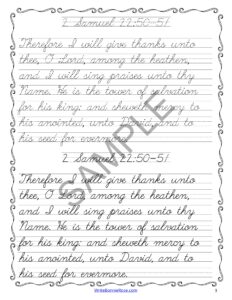 2 Samuel 22:50-51
Therefore I will give thanks unto
thee, O Lord, among the heathen,
and I will sing praises unto thy
Name. He is the tower of salvation
for his king: and sheweth mercy to
his anointed, unto David, and to
his seed for evermore.
2 Samuel 22:50-51
Therefore I will give thanks unto
thee, O Lord, among the heathen,
and I will sing praises unto thy
Name. He is the tower of salvation
for his king: and sheweth mercy to
his anointed, unto David, and to
his seed for evermore.
SAMPLE